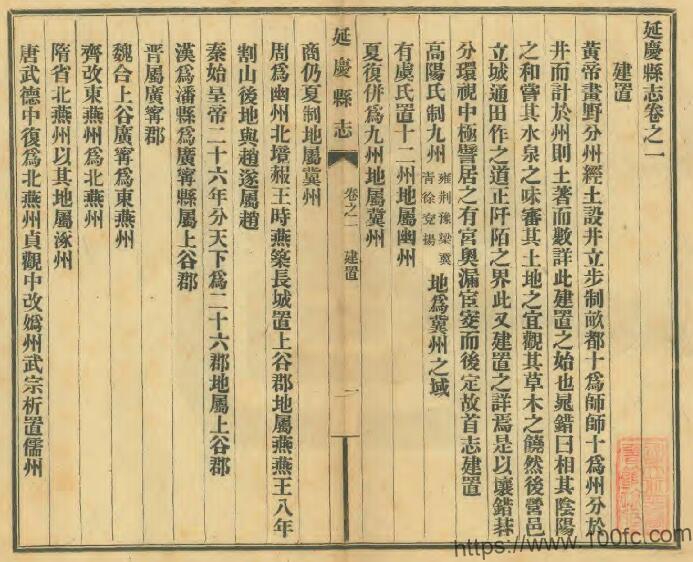 延慶縣志卷之一
建置
黃帝畫野分州經土設井立步制畝都十爲師師十爲州分於
井而計於州則土著而數詳此建置之始也晁錯曰相其陰陽
之和嘗其水泉之味審其土地之宜觀其草木之饒然後營邑
立城通田作之道正阡陌之界此又建置之詳焉是以壤錯棊
分環視中極譬居之有宮奧漏宧窔而後定故首志建置
高陽氏制九州雍荆豫梁冀青徐兗揚地爲冀州之域
有虞氏置十二州地屬幽州
夏復併爲九州地屬冀州
延慶縣志
卷之一
建置
一
商仍夏制地屬冀州
周爲幽州北境赧王時燕築長城置上谷郡地屬燕燕王八年
割山後地與趙遂屬趙
秦始皇帝二十六年分天下爲三十六郡地屬上谷郡
漢爲潘縣爲廣寧縣屬上谷郡
晉屬廣寧郡
魏合上谷廣寧爲東燕州
齊改東燕州爲北燕州
隋省北燕州以其地屬涿州
唐武德中復爲北燕州貞觀中改嬀州武宗析置儒州
https://www.100fc.com